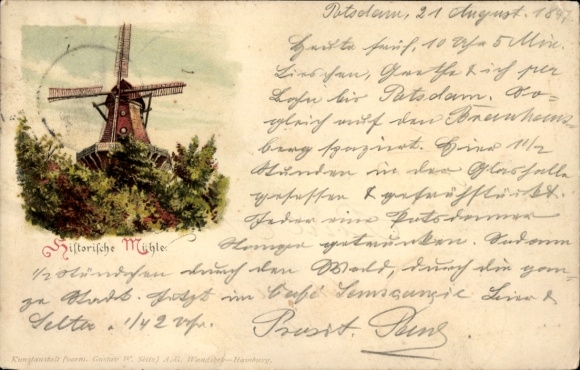 Potsdam, 21 August. 1897
Heute früh, 10 Uhr 5 Min.
Lieschen, Grethe & ich per
Bahn bis Potsdam. So-
gleich auf den Brauhaus-
berg spaziert. Hier 1 1/2
Stunden in der Glashalle
gesessen & gefrühstückt.
Jeder eine Potsdamer
Stange getrunken. Sodann
1/2 Stündchen durch den Wald, durch die gan-
ze Stadt. Jetzt im Café Sanssouci Bier &
Selter. 1/4 2 Uhr. Prosit.
Historische Mühle.
Kunstanstalt (vorm. Gustav W. Seitz) A.-G. Wandsbek-Hamburg.